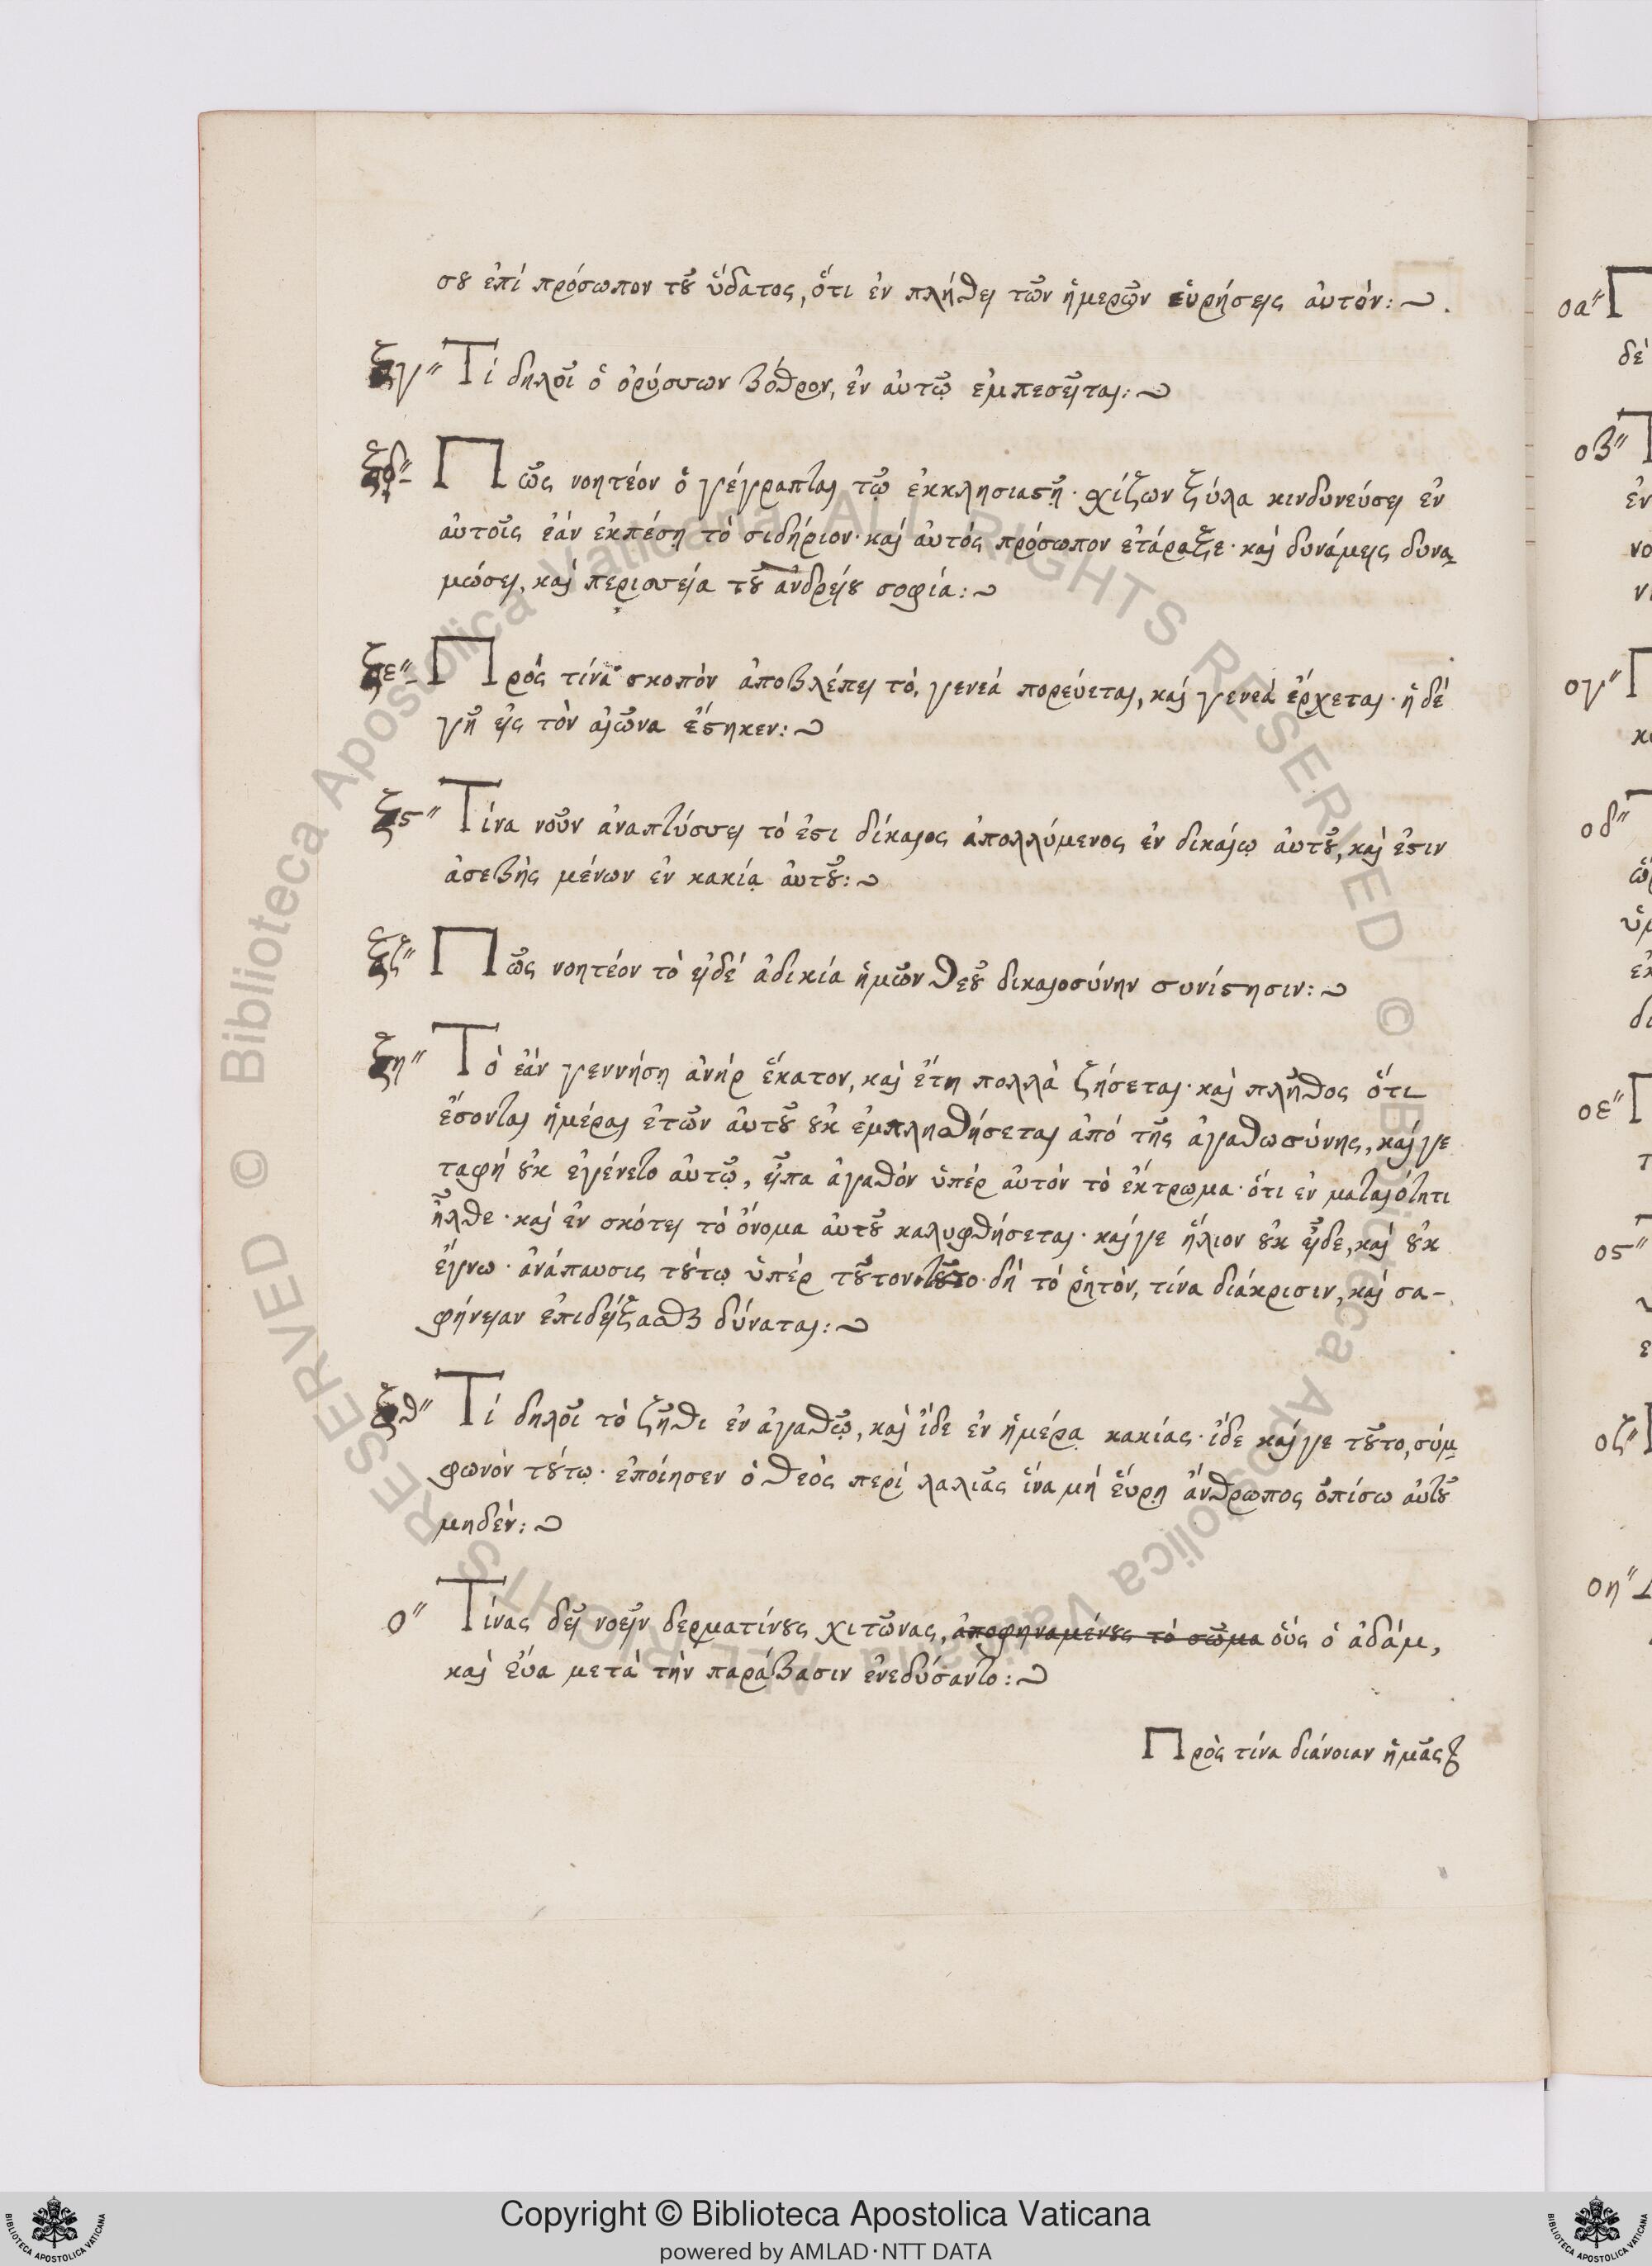 σȣ ἐπὶ πρόσωπον τȣ͂ ὕδατος, ὅτι ἐν πλήθει τῶν ἡμερῶν εὑρήσεις ἀυτόν:
ξγ" Τί δηλοῖ ὁ ὀρύσσων βόθρον, ἐν ἀυτῷ ἐμπεσεῖται:
ξδ" Πῶς νοητέον ὃ γέγραπται τῷ ἐκκλησιαϛῇ· χίζων ξύλα κινδυνεύσει ἐν
ἀυτοῖς ἐάν ἐκπέσῃ τὸ σιδήριον· καί ἀυτός πρόσωπον ἐτάραξε· καὶ δυνάμεις δυνα
μώσει, καὶ περισσεία τȣ͂ ἀνδρείȣ σοφία:
ξε" Πρός τίνα σκοπὸν ἀποβλέπει τὸ, γενεά πορεύεται, καὶ γενεά ἔρχεται· ἡ δέ
γῆ εἰς τὸν αἰῶνα ἕϛηκεν:
ξϛ" Τίνα νοῦν ἀναπτύσσει τό ἔϛι δίκαιος ἀπολλύμενος ἐν δικαίῳ ἀυτȣ͂, καὶ ἔϛιν
ἀσεβὴς μένων ἐν κακίᾳ ἀυτȣ͂:
ξζ" Πῶς νοητέον τὸ εἰδέ ἀδικία ἡμῶν Θεȣ͂ δικαιοσύνην συνίϛησιν:
ξη" Τὸ ἐάν γεννήσῃ ἀνήρ ἕκατον, καὶ ἔτη πολλὰ ζήσεται· καὶ πλῆθος ὅτι
ἔσονται ἡμέραι ἐτῶν ἀυτȣ͂ ȣ̓κ ἐμπλησθήσεται ἀπό τῆς ἀγαθωσύνης, καίγε
ταφή ȣ̓κ ἐγένετο ἀυτῷ, εἶπα ἀγαθόν ὑπέρ ἀυτόν τὸ ἔκτρωμα· ὅτι ἐν ματαιότητι
ἦλθε· καὶ ἐν σκότει τὸ ὄνομα ἀυτȣ͂ καλυφθήσεται· καίγε ἥλιον ȣ̓κ εἶδε, καὶ ȣ̓κ
ἔγνω· ἀνάπαυσις τȣ́τῳ ὑπέρ τȣ͂τον τȣ͂το· δὴ τό ῥητόν, τίνα διάκρισιν, καὶ σα-
φήνειαν ἐπιδείξασθαι δύναται:
ξθ" Τί δηλοῖ τὸ ζῆθι ἐν ἀγαθῷ, καὶ ἴδε ἐν ἡμέρᾳ κακίας· ἴδε καίγε τȣ͂το, σύμ
φωνόν τȣ́τῳ· ἐποίησεν ὁ Θεὸς περί λαλιᾶς ἵνα μή ἕυρῃ ἄνθρωπος ὀπίσω ἀυτȣ͂
μηδέν:
ο" Τίνας δεῖ νοεῖν δερματίνȣς χιτῶνας, ἀποφηναμένȣς τό σῶμα οὓς ὁ ἀδάμ,
καὶ ἔυα μετὰ τὴν παράβασιν ἐνεδύσαντο:
Πρὸς τίνα διάνοιαν ἡμᾶς
οα"
δέ
οβ"
ἐν
νο
ογ"
οδ"
οε"
οϛ"
οζ"
οη"
Copyright © Biblioteca Apostolica Vaticana
powered by AMLAD·NTT DATA